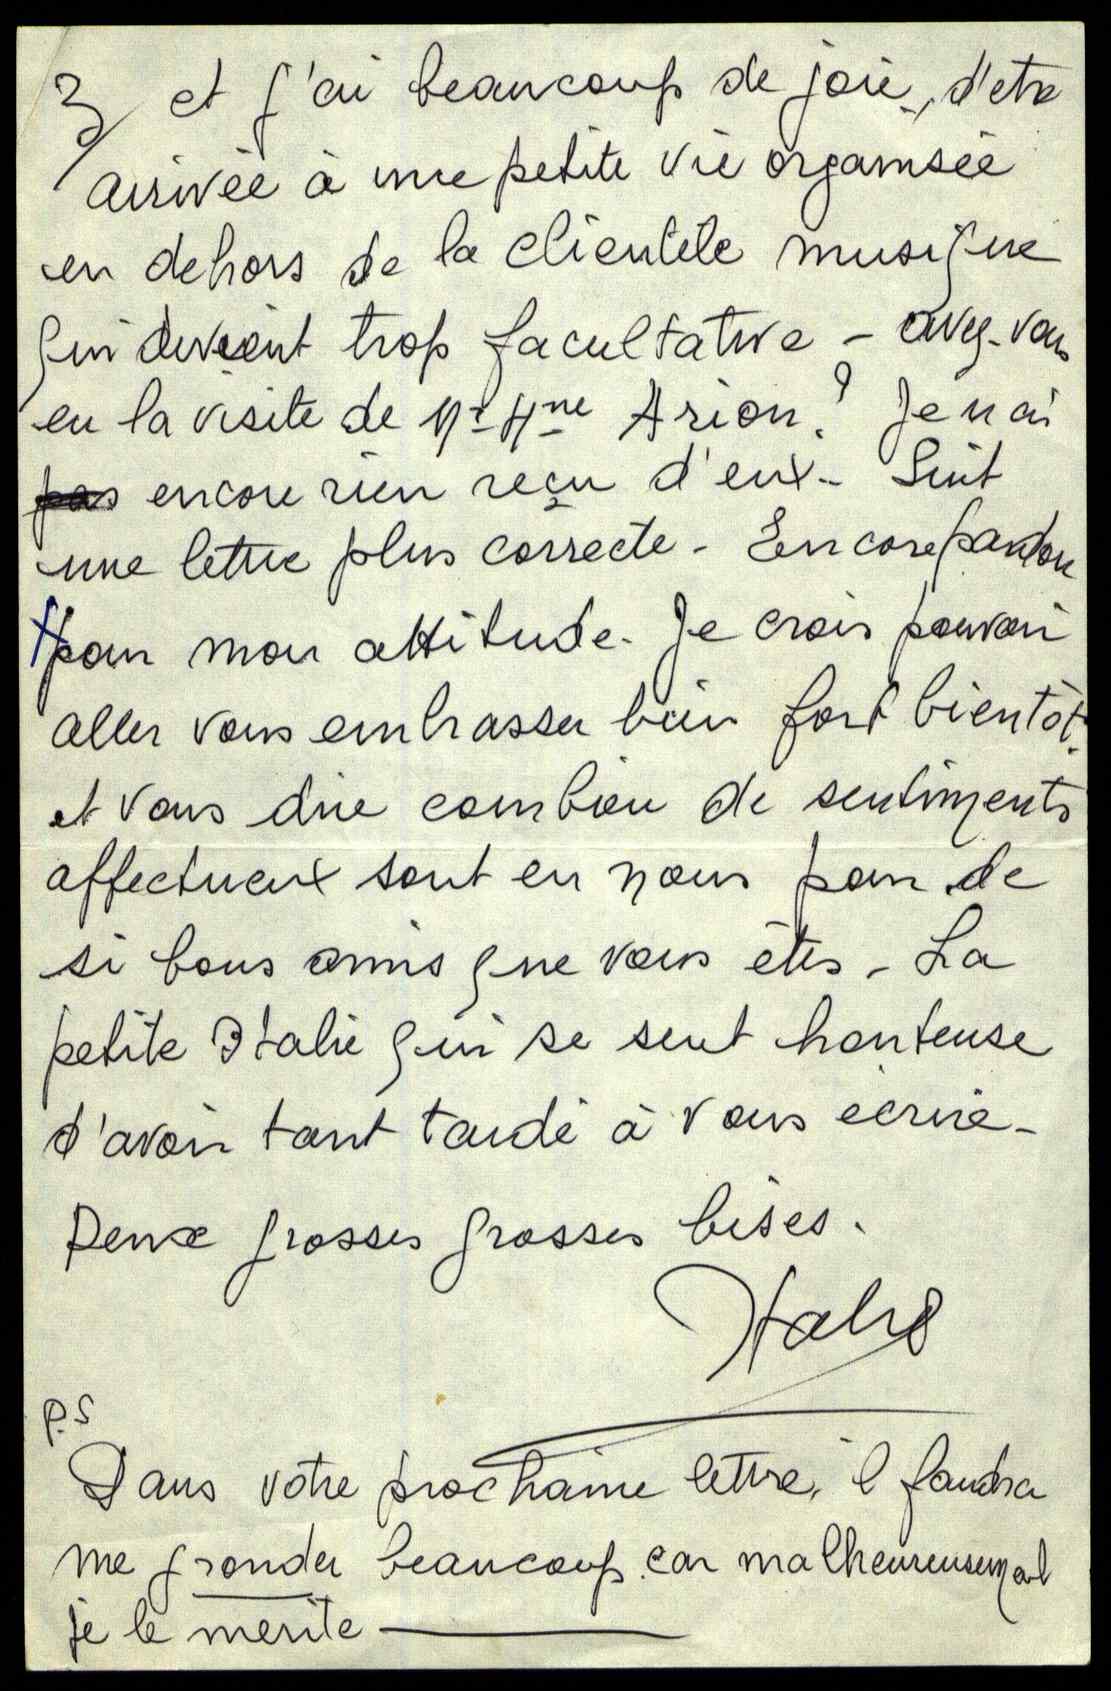 3/ et j'ai beaucoup de joie, d'etre
arrivée à une petite vie organisée
en dehors de la clientele musique
qui devient trop facultative - avez-vous
eu la visite de Mr Mme Arion? Je n'ai
pas encore rien reçu d'eux - Suit
une lettre plus correcte - Encore pardon
pour mon attitude. Je crois pouvoir
aller vous embrasser bien fort bientôt.
et vous dire combien de sentiments
affectueux sont en nous pour de
si bons amis que vous êtes - La
petite Italie qui se sent honteuse
d'avoir tant tardé à vous écrire -
Deux grosses grosses bises.
Italie
P.S
Dans votre prochaine lettre, il faudra
me gronder beaucoup car malheureusement
je le merite